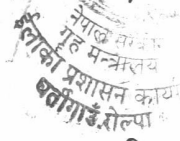 नेपाल सरकार
गृह मन्त्रालय
इलाका प्रशासन कार्या
घर्तीगाउँ, रोल्पा